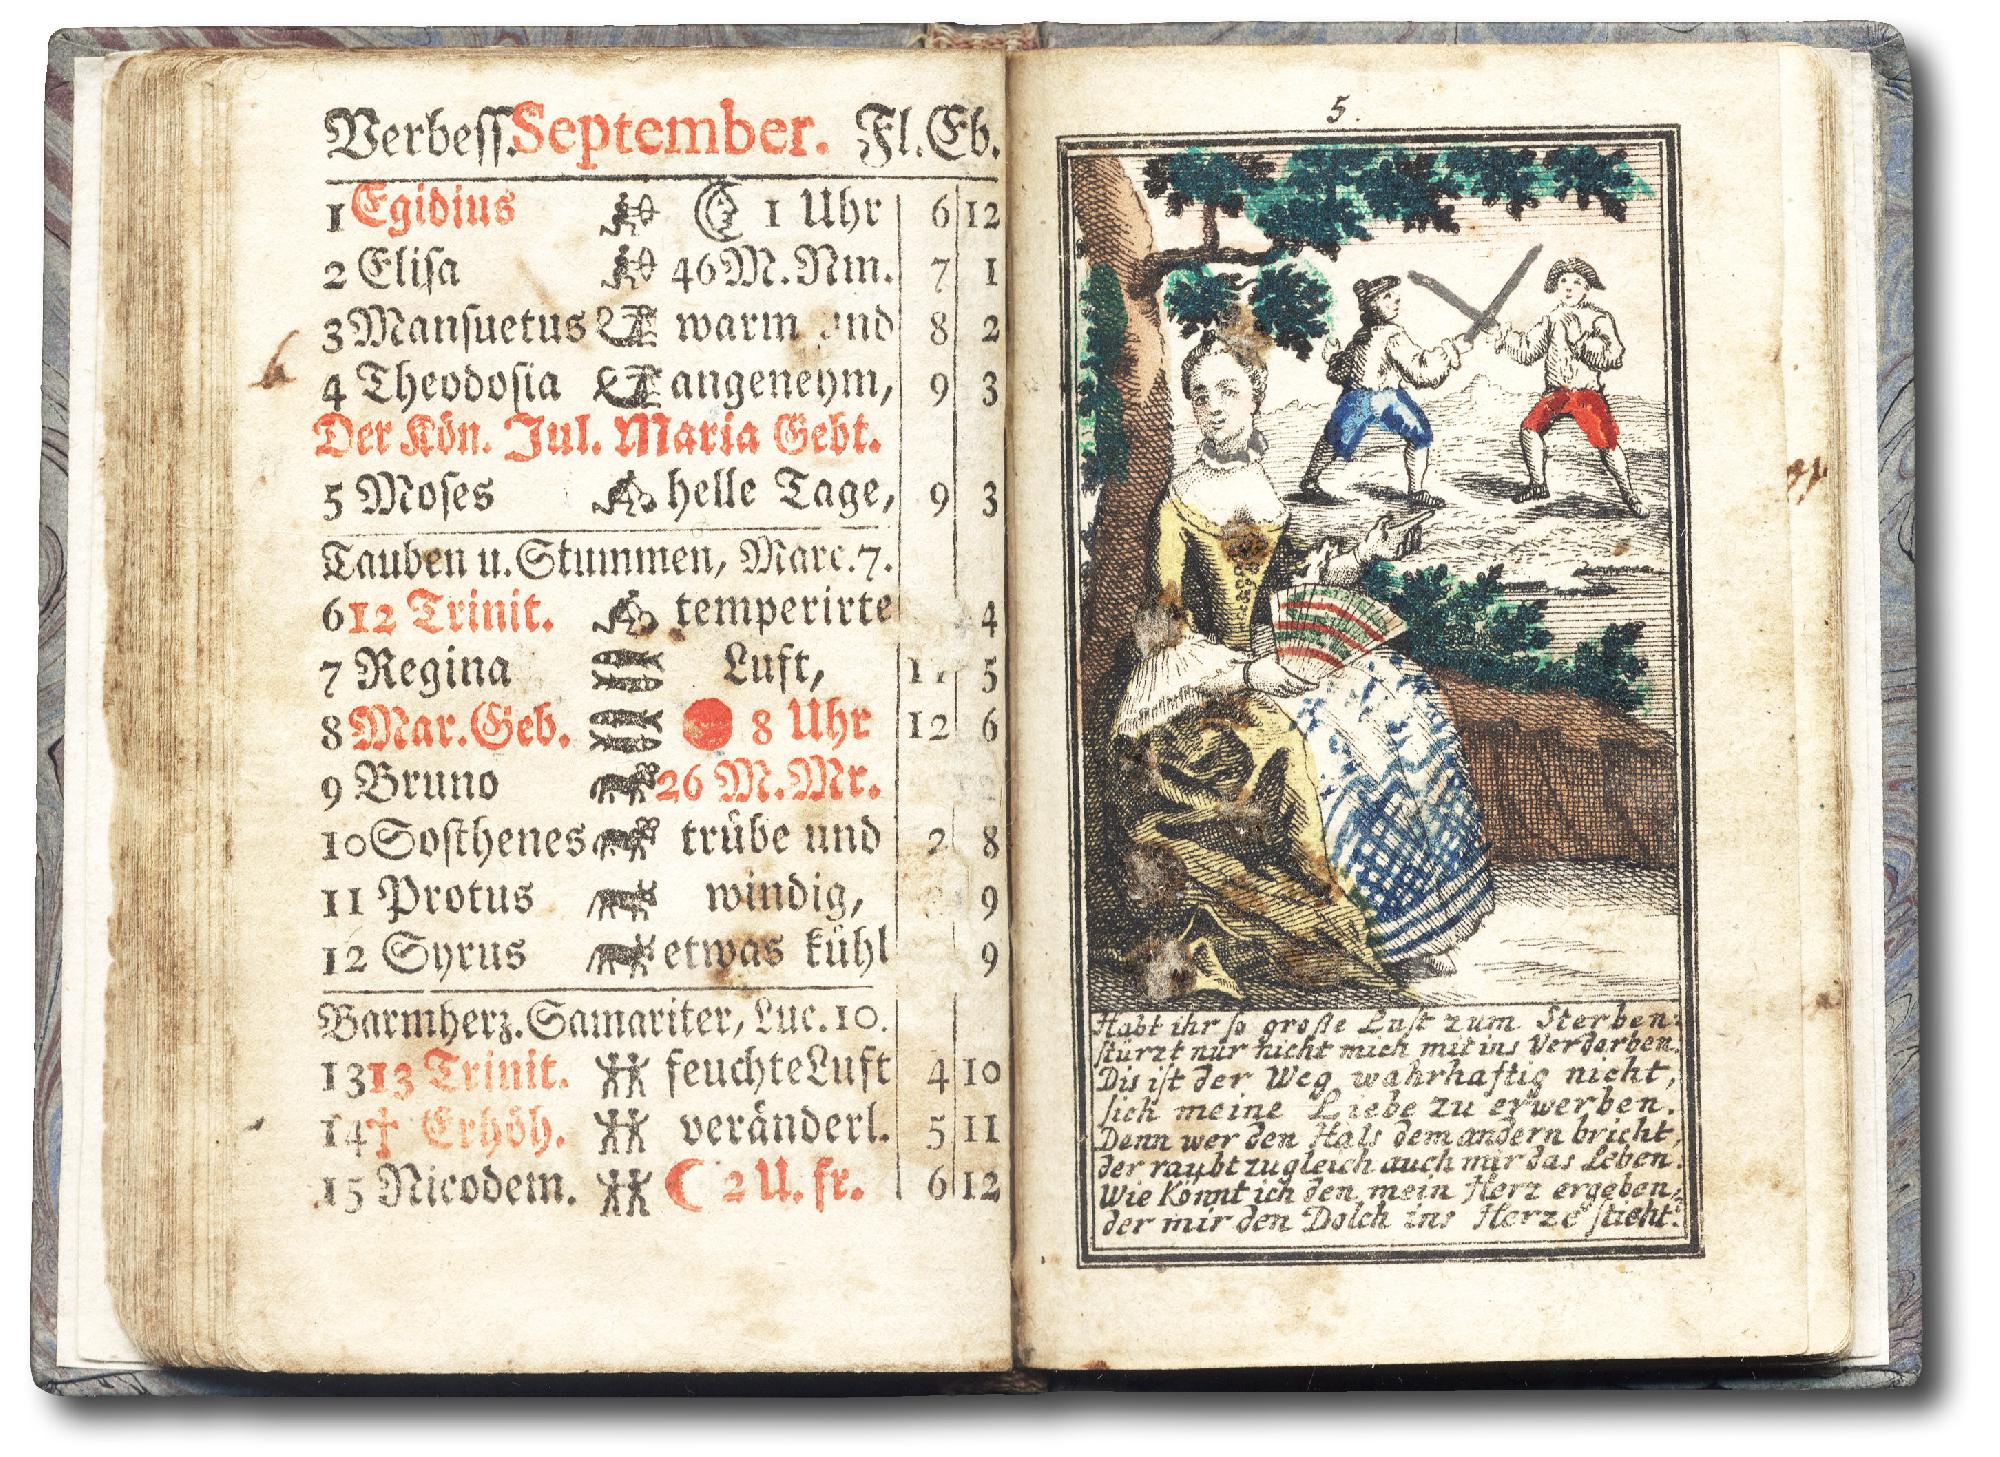 Verbess. September. Fl. Eb.
1 Egidius 1 Uhr 6 12
2 Elisa 46 M. Nm. 7 1
3 Mansuetus warm und 8 2
4 Theodosia angenehm, 9 3
Der Kön. Jul. Maria Gebt.
5 Moses helle Tage, 9 3
Tauben u. Stummen, Marc. 7.
6 12 Trinit. temperirte 4
7 Regina Luft, 11 5
8 Mar. Geb. 8 Uhr 12 6
9 Bruno 26 M. Mr.
10 Sosthenes trübe und 2 8
11 Protus windig, 9
12 Syrus etwas kühl 9
Barmherz. Samariter, Luc. 10.
13 13 Trinit. feuchte Luft 4 10
14 † Erhöh. veränderl. 5 11
15 Nicodem. 2 U. fr. 6 12
5.
Habt ihr so große Lust zum Sterben:
stürzt nur nicht mich mit ins Verderben.
Dis ist der Weg wahrhaftig nicht,
sich meine Liebe zu erwerben.
Denn wer den Hals dem andern bricht,
der raubt zugleich auch mir das Leben.
Wie Könnt ich den mein Herz ergeben,
der mir den Dolch ins Herze sticht.